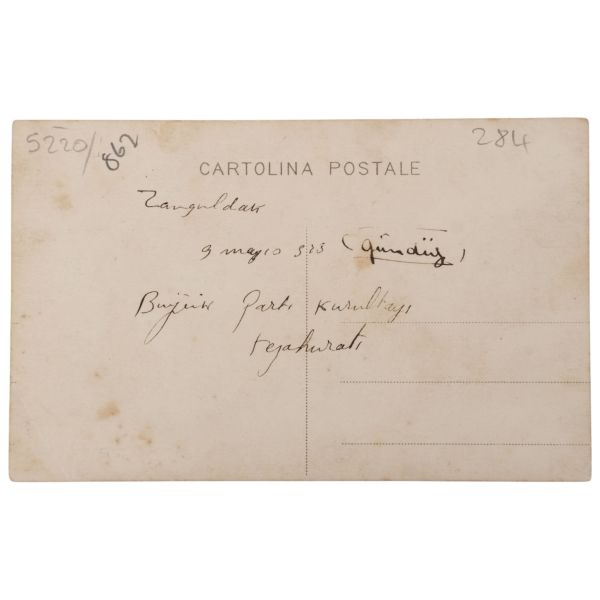 5220/ 862
284
CARTOLINA POSTALE
Zanguldak
9 mayıs 935 (Gündüz)
Büyük Parti Kurultayı
tezahuratı